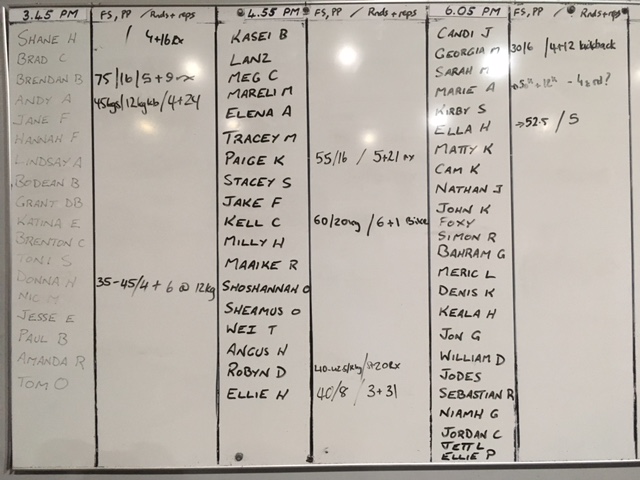 3.45 PM FS, PP / Rnds + reps
SHANE H / 4+16Rx
BRAD C
BRENDAN B 75/16/5+9 rx
ANDY A 45kgs/12kgkb/4+24
JANE F
HANNAH F
LINDSAY A
BODEAN B
GRANT DB
KATINA E
BRENTON C
TONI S
DONNA H 35-45/4+6 @ 12kg
NIC M
JESSE E
PAUL B
AMANDA R
TOM O
4.55 PM FS, PP / Rnds + reps
KASEI B
LANZ
MEG C
MARELI M
ELENA A
TRACEY M
PAIGE K 55/16 / 5+21 rx
STACEY S
JAKE F
KELL C 60/20kg /6+1
MILLY H
MAAIKE R
SHOSHANNAH O
SHEAMUS O
WEI T
ANGUS H
ROBYN D
ELLIE H 40/8 / 3+31
6.05 PM FS, PP / Rnds + reps
CANDI J
GEORGIA M 30/6 /4+12
SARAH M
MARIE A
KIRBY S
ELLA H →52.5 / 5
MATTY K
CAM K
NATHAN J
JOHN K
FOXY
SIMON R
BAHRAM G
MERIC L
DENIS K
KEALA H
JON G
WILLIAM D
JODES
SEBASTIAN R
NIAMH G
JORDAN C
JETT L
ELLIE P